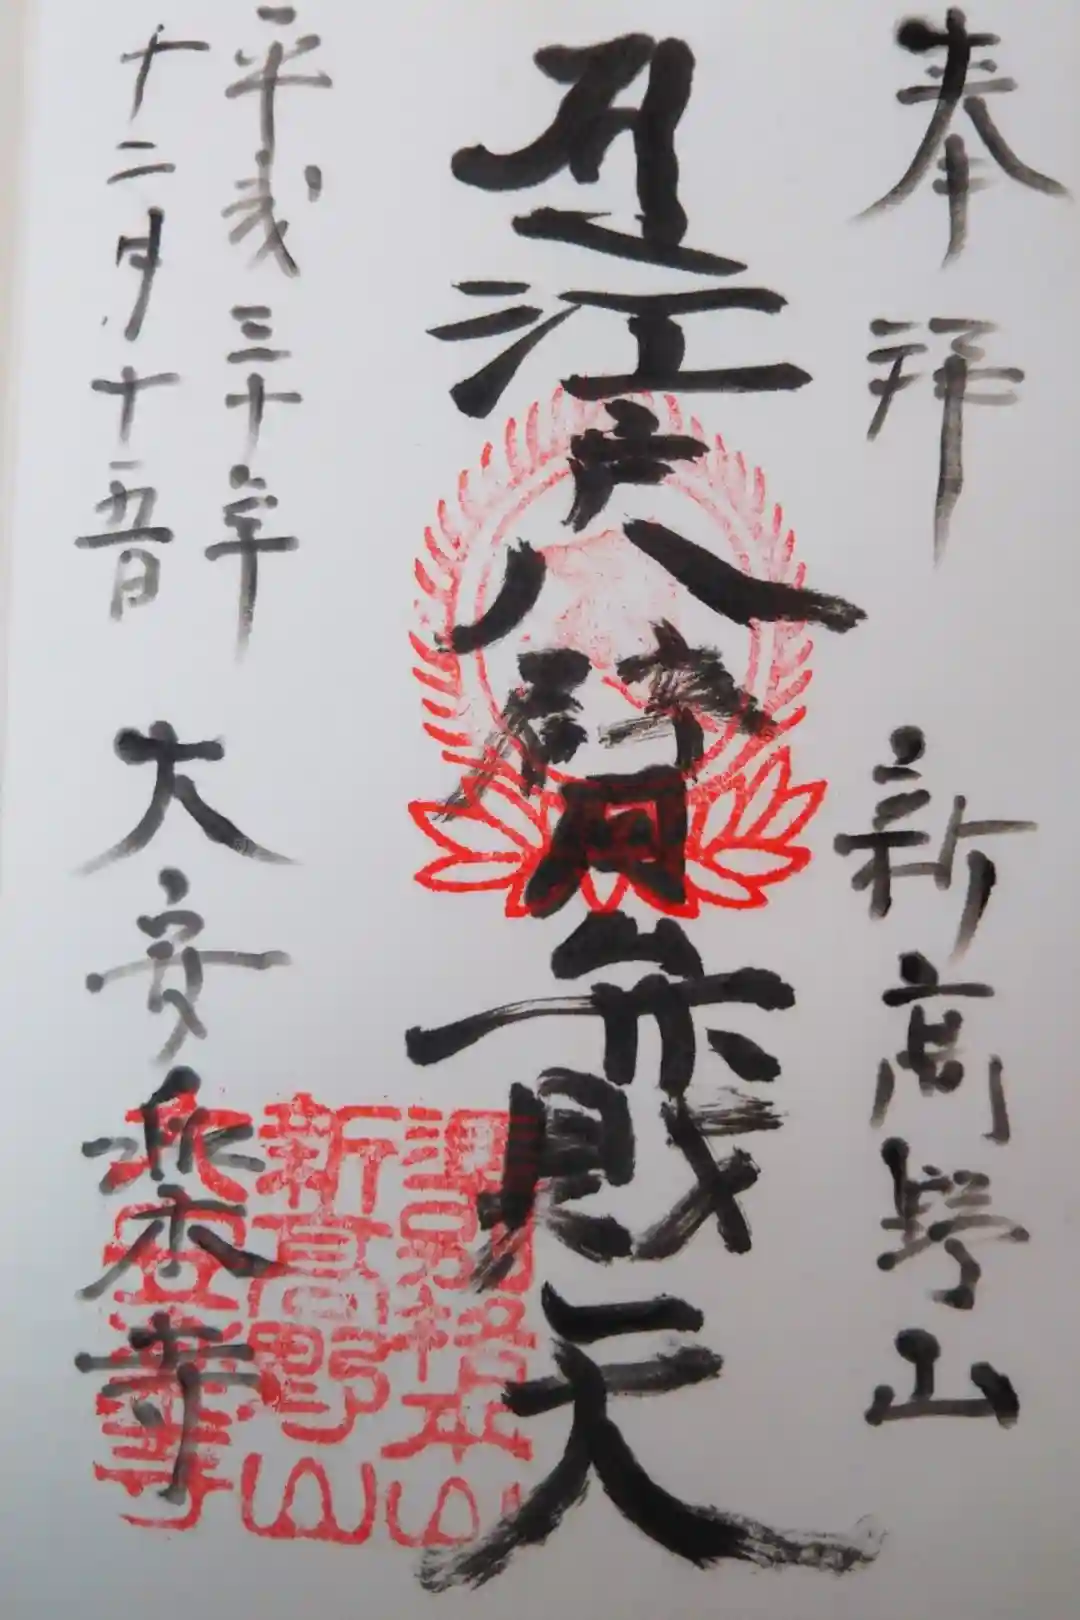 奉拝 新高野山
江戸八臂弁財天
平成三十年
十二月十五日
大安楽寺
準別格本山
新高野山